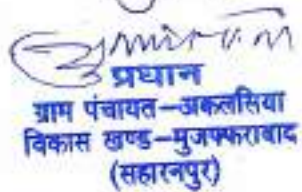 प्रधान
ग्राम पंचायत-अकलसिया
विकास खण्ड-मुजफ्फराबाद
(सहारनपुर)